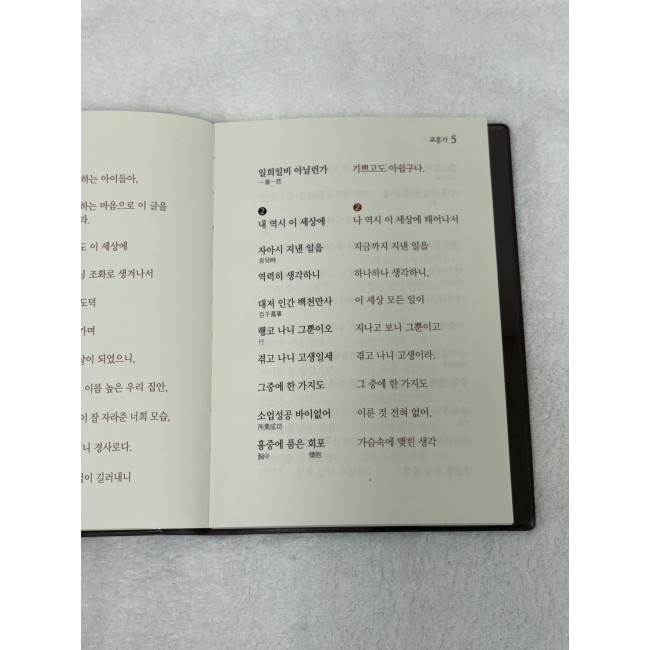 하는 아이들아,
하는 마음으로 이 글을
라.
도 이 세상에
조화로 생겨나서
도덕
가며
날이 되었으니,
이름 높은 우리 집안,
이 잘 자라준 너희 모습,
니 경사로다.
없이 길러내니
교훈가 5
일희일비 아닐런가 기쁘고도 아쉽구나.
一喜一悲
❷ ❷
내 역시 이 세상에 나 역시 이 세상에 태어나서
자아시 지낸 일을 지금까지 지낸 일을
自兒時
역력히 생각하니 하나하나 생각하니,
대저 인간 백천만사 이 세상 모든 일이
百千萬事
행코 나니 그뿐이오 지나고 보니 그뿐이고
行
겪고 나니 고생일세 겪고 나니 고생이라.
그중에 한 가지도 그 중에 한 가지도
소업성공 바이없어 이룬 것 전혀 없어,
所業成功
흉중에 품은 회포 가슴속에 맺힌 생각
胸中 懷抱